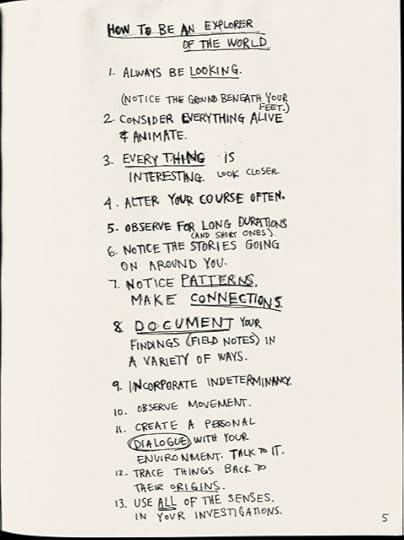 HOW TO BE AN EXPLORER
OF THE WORLD
1. ALWAYS BE LOOKING.
(NOTICE THE GROUND BENEATH YOUR
FEET.)
2. CONSIDER EVERYTHING ALIVE
& ANIMATE.
3. EVERY THING IS
INTERESTING. LOOK CLOSER.
4. ALTER YOUR COURSE OFTEN.
5. OBSERVE FOR LONG DURATIONS
(AND SHORT ONES).
6. NOTICE THE STORIES GOING
ON AROUND YOU.
7. NOTICE PATTERNS.
MAKE CONNECTIONS.
8. DOCUMENT YOUR
FINDINGS (FIELD NOTES) IN
A VARIETY OF WAYS.
9. INCORPORATE INDETERMINANCY.
10. OBSERVE MOVEMENT.
11. CREATE A PERSONAL
DIALOGUE WITH YOUR
ENVIRONMENT. TALK TO IT.
12. TRACE THINGS BACK TO
THEIR ORIGINS.
13. USE ALL OF THE SENSES.
IN YOUR INVESTIGATIONS.
5